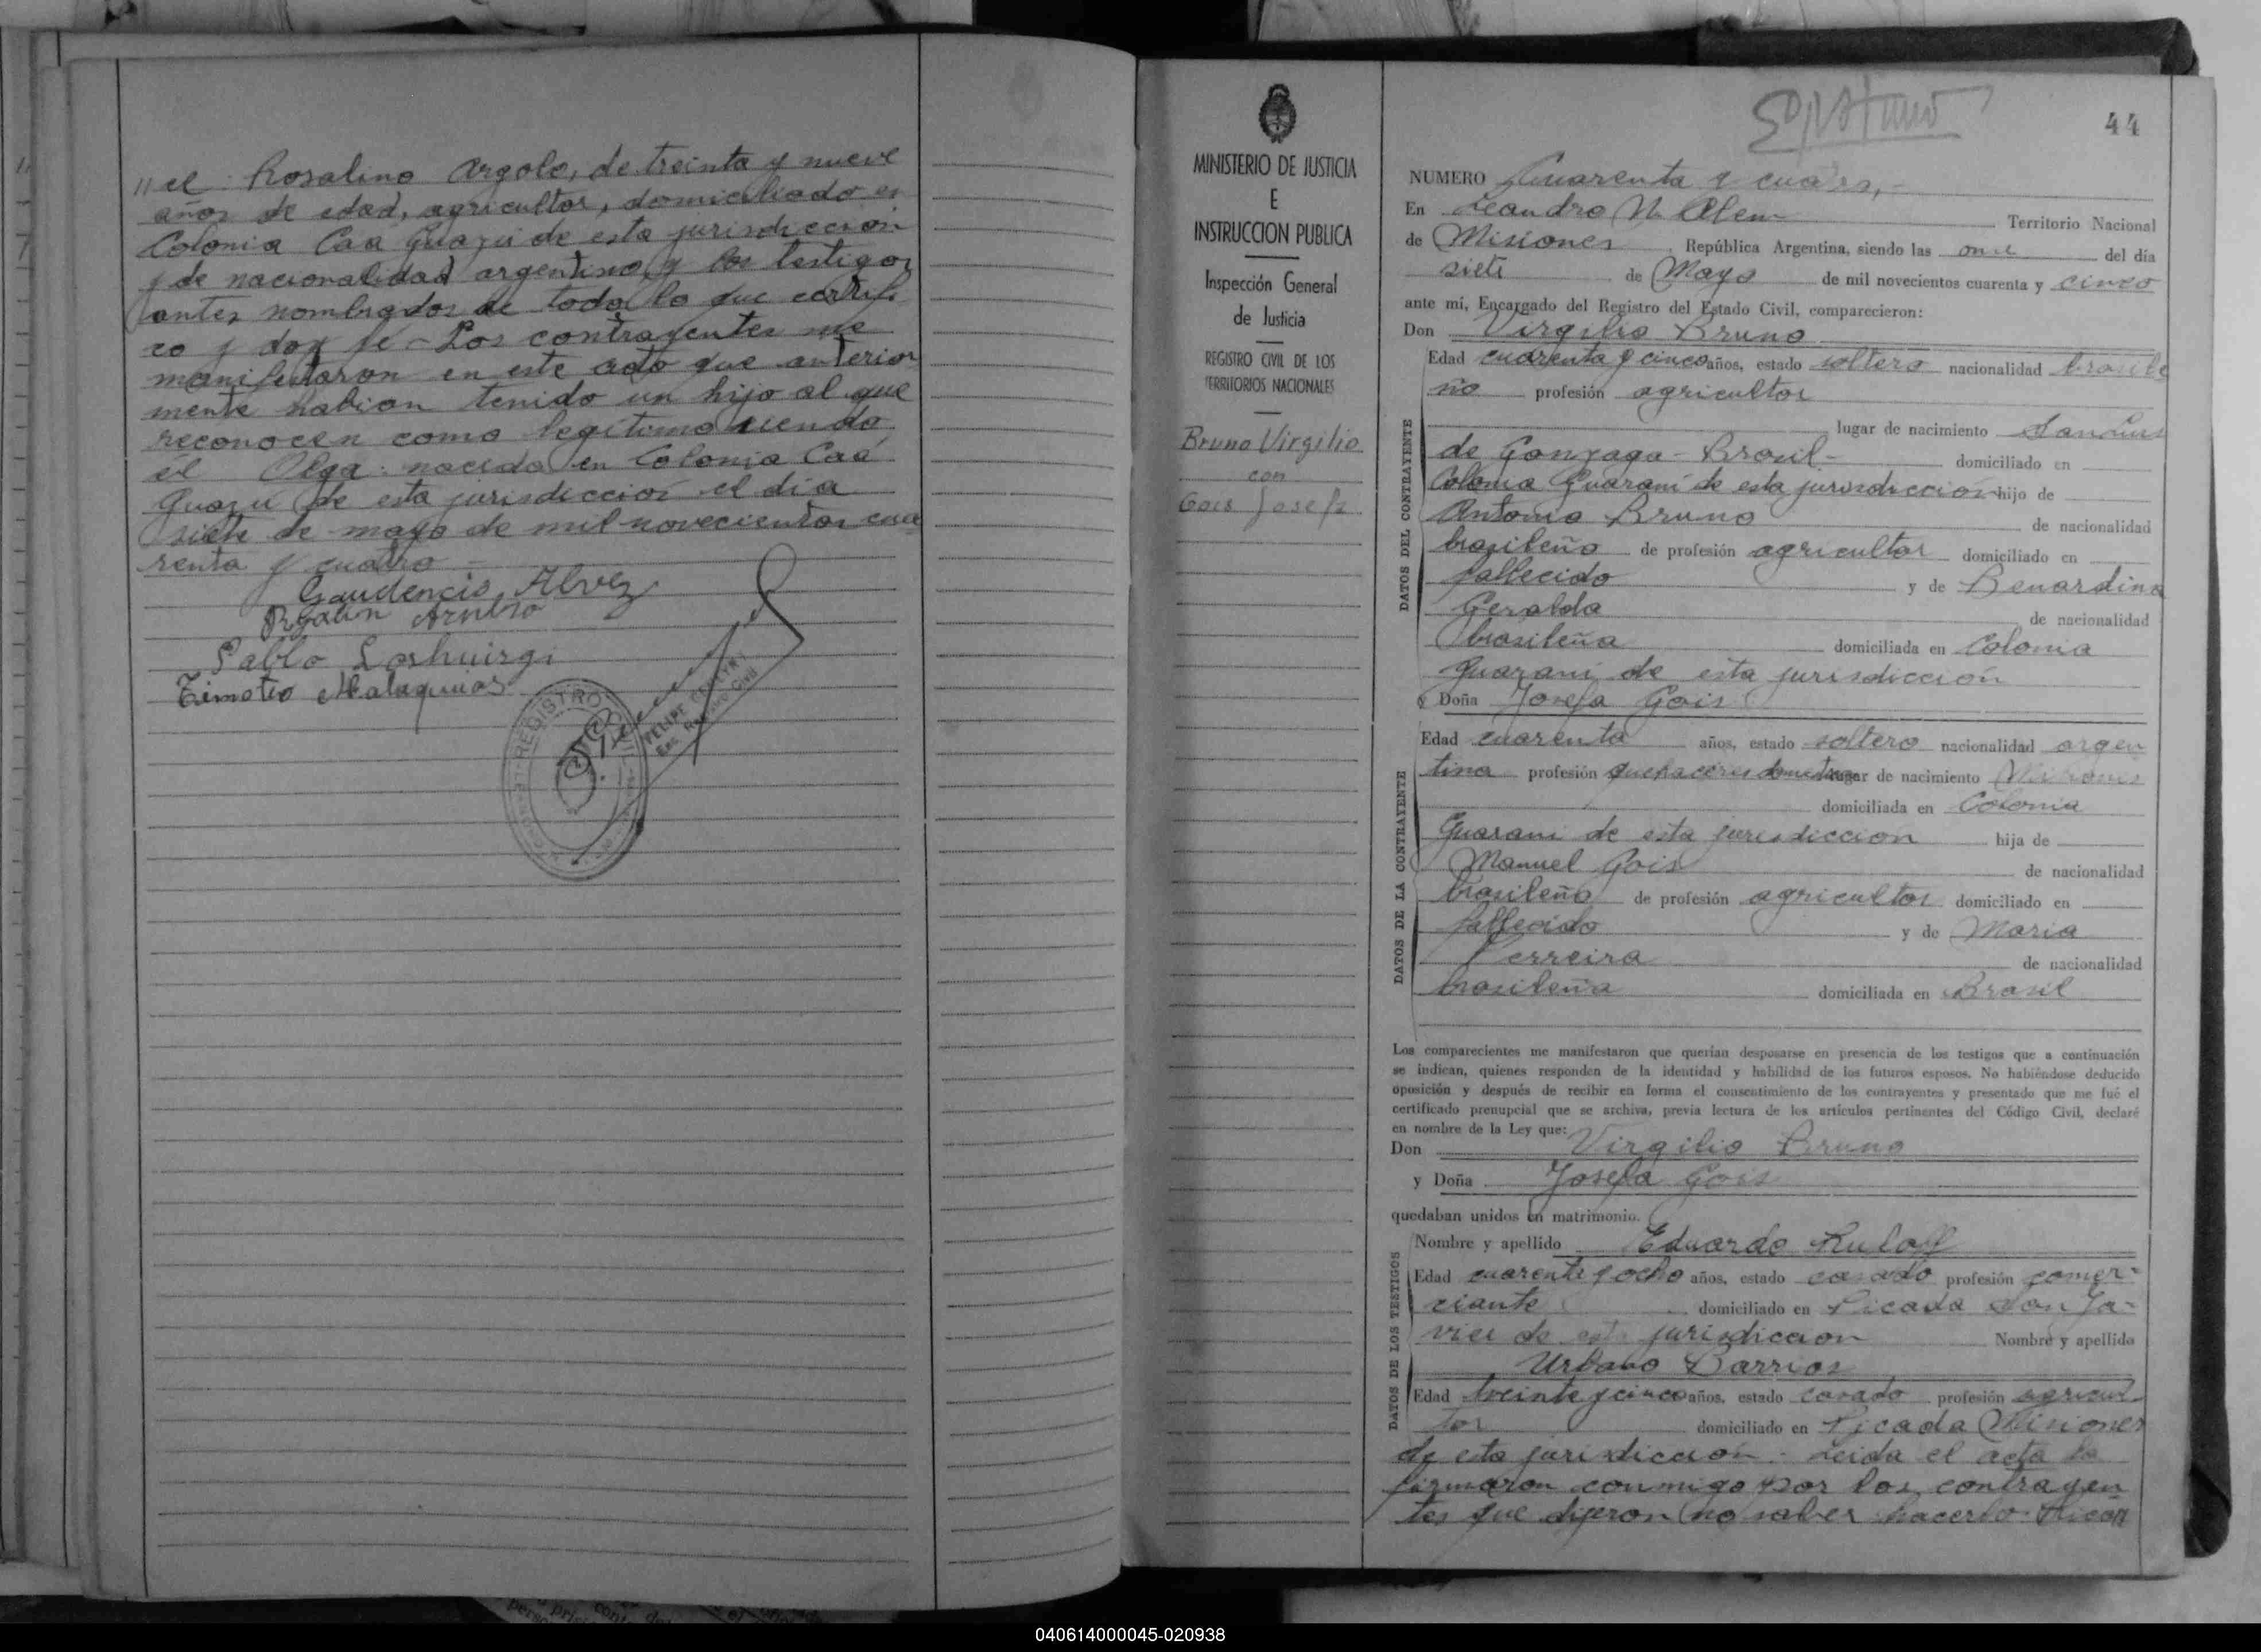 "el Rosalino Argolo, de treinta y nueve
años de edad, agricultor, domiciliado en
Colonia Caá Guazú de esta jurisdiccion
y de nacionalidad argentino y los testigos
antes nombrados de todo lo que certifi
co y doy fé - Los contrayentes me
manifestaron en este acto que anterior
mente habian tenido un hijo al que
reconocen como legítimo siendo
el Olga: nacida en Colonia Caá
Guazú de esta jurisdiccion el dia
siete de mayo de mil novecientos cua
renta y cuatro -
Gaudencio Alvez
Pablo Loshuirgi
Timoteo Malaquias
REGISTRO CIVIL
Enc. Registro Civil
MINISTERIO DE JUSTICIA
E
INSTRUCCION PUBLICA
Inspección General
de Justicia
REGISTRO CIVIL DE LOS
TERRITORIOS NACIONALES
Bruno Virgilio
con
Gois Josefa
44
NUMERO Cuarenta y cuatro,-
En Leandro N. Alem Territorio Nacional
de Misiones República Argentina, siendo las once del día
siete de Mayo de mil novecientos cuarenta y cinco
ante mí, Encargado del Registro del Estado Civil, comparecieron:
Don Virgilio Bruno
DATOS DEL CONTRAYENTE
Edad cuarenta y cinco años, estado soltero nacionalidad brasile
ño profesión agricultor
lugar de nacimiento San Luis
de Gonzaga - Brasil - domiciliado en
Colonia Guaraní de esta jurisdiccion hijo de
Antonio Bruno de nacionalidad
brasileño de profesión agricultor domiciliado en
fallecido y de Benardina
Geralda de nacionalidad
brasileña domiciliada en Colonia
Guarani de esta jurisdicción
y Doña Josefa Gois
DATOS DE LA CONTRAYENTE
Edad cuarenta años, estado soltero nacionalidad argen
tina profesión quehaceres domesticos lugar de nacimiento Misiones
domiciliada en Colonia
Guarani de esta jurisdiccion hija de
Manuel Gois de nacionalidad
brasileño de profesión agricultor domiciliado en
fallecido y de Maria
Ferreira de nacionalidad
brasileña domiciliada en Brasil
Los comparecientes me manifestaron que querían desposarse en presencia de los testigos que a continuación
se indican, quienes responden de la identidad y habilidad de los futuros esposos. No habiéndose deducido
oposición y después de recibir en forma el consentimiento de los contrayentes y presentado que me fué el
certificado prenupcial que se archiva, previa lectura de los artículos pertinentes del Código Civil, declaré
en nombre de la Ley que:
Don Virgilio Bruno
y Doña Josefa Gois
quedaban unidos en matrimonio.
DATOS DE LOS TESTIGOS
Nombre y apellido Eduardo Kuloff
Edad cuarenta y ocho años, estado casado profesión comer-
ciante domiciliado en Picada San Ja-
vier de esta jurisdiccion Nombre y apellido
Urbano Barrios
Edad treinta y cinco años, estado casado profesión agricul
tor domiciliado en Picada Misiones
de esta jurisdiccion - Leida el acta la
firmaron conmigo por los contrayen
tes que dijeron no saber hacerlo:
040614000045-020938